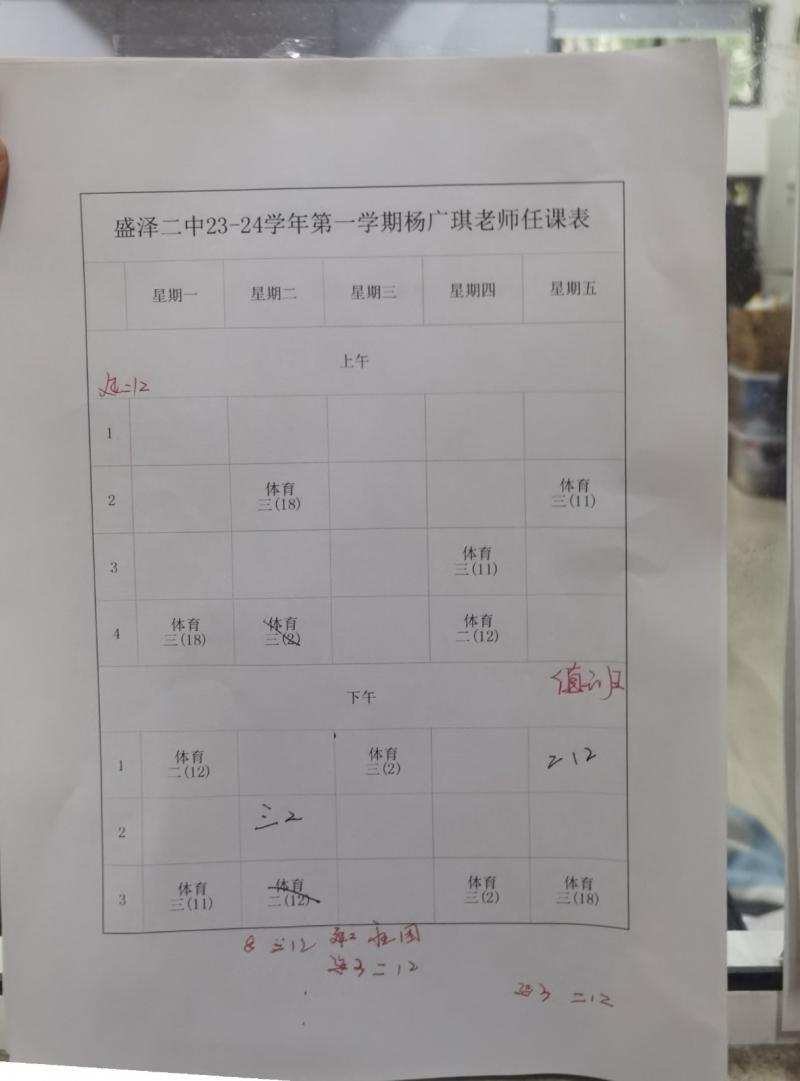 盛泽二中23-24学年第一学期杨广琪老师任课表
星期一 星期二 星期三 星期四 星期五
上午
二12
1
2 体育 三(18) 体育 三(11)
3 体育 三(11)
4 体育 三(18) 体育 三(2) 体育 二(12)
值班
下午
1 体育 二(12) 体育 三(2) 二12
2 三2
3 体育 三(11) 体育 二(12) 体育 三(2) 体育 三(18)
二12
3 二12
3 二12